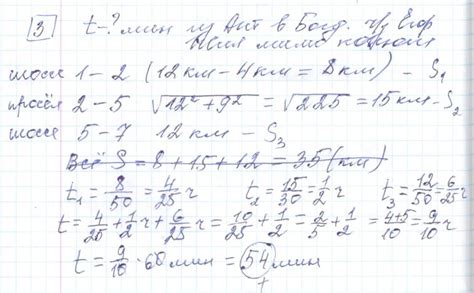 3 t-? мин из Ант в Богд. ч/з Егор
шоссе 1-2 (12 км - 4 км = 8 км) - S₁
просёл 2-5 √12² + 9² = √225 = 15 км - S₂
шоссе 5-7 12 км - S₃
Всё S = 8 + 15 + 12 = 35 (км)
t₁ = 8/50 = 4/25 ч t₂ = 15/30 = 1/2 ч t₃ = 12/50 = 6/25 ч
t = 4/25 + 1/2 ч + 6/25 ч = 10/25 + 1/2 = 2/5 + 1/2 = 4+5/10 = 9/10 ч
t = 9/10 · 60 мин = 54 мин
+